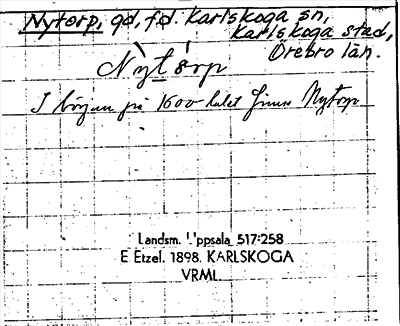 Nytorp, gd, f.d. Karlskoga sn,
Karlskoga stad,
Örebro län.
Nỳtórp
I början på 1600 talet finns Nytorp
Landsm. Uppsala 517:258
E Etzel. 1898. KARLSKOGA
VRML.